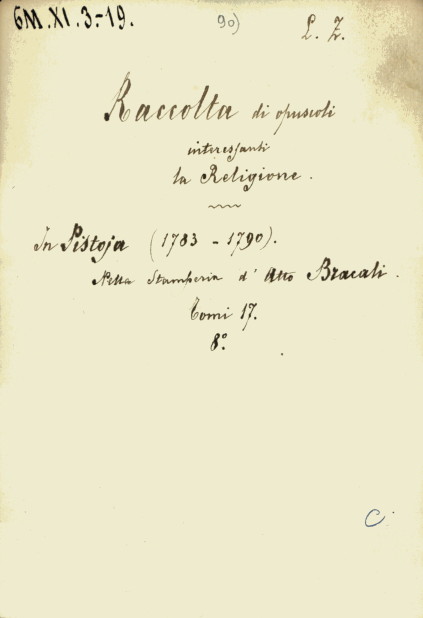 6M.XI.3-19.
90)
L. Z.
Raccolta di opuscoli
interessanti
la Religione.
In Pistoja (1783 - 1790).
Nella Stamperia d' Atto Bracali.
Tomi 17.
8º.
C